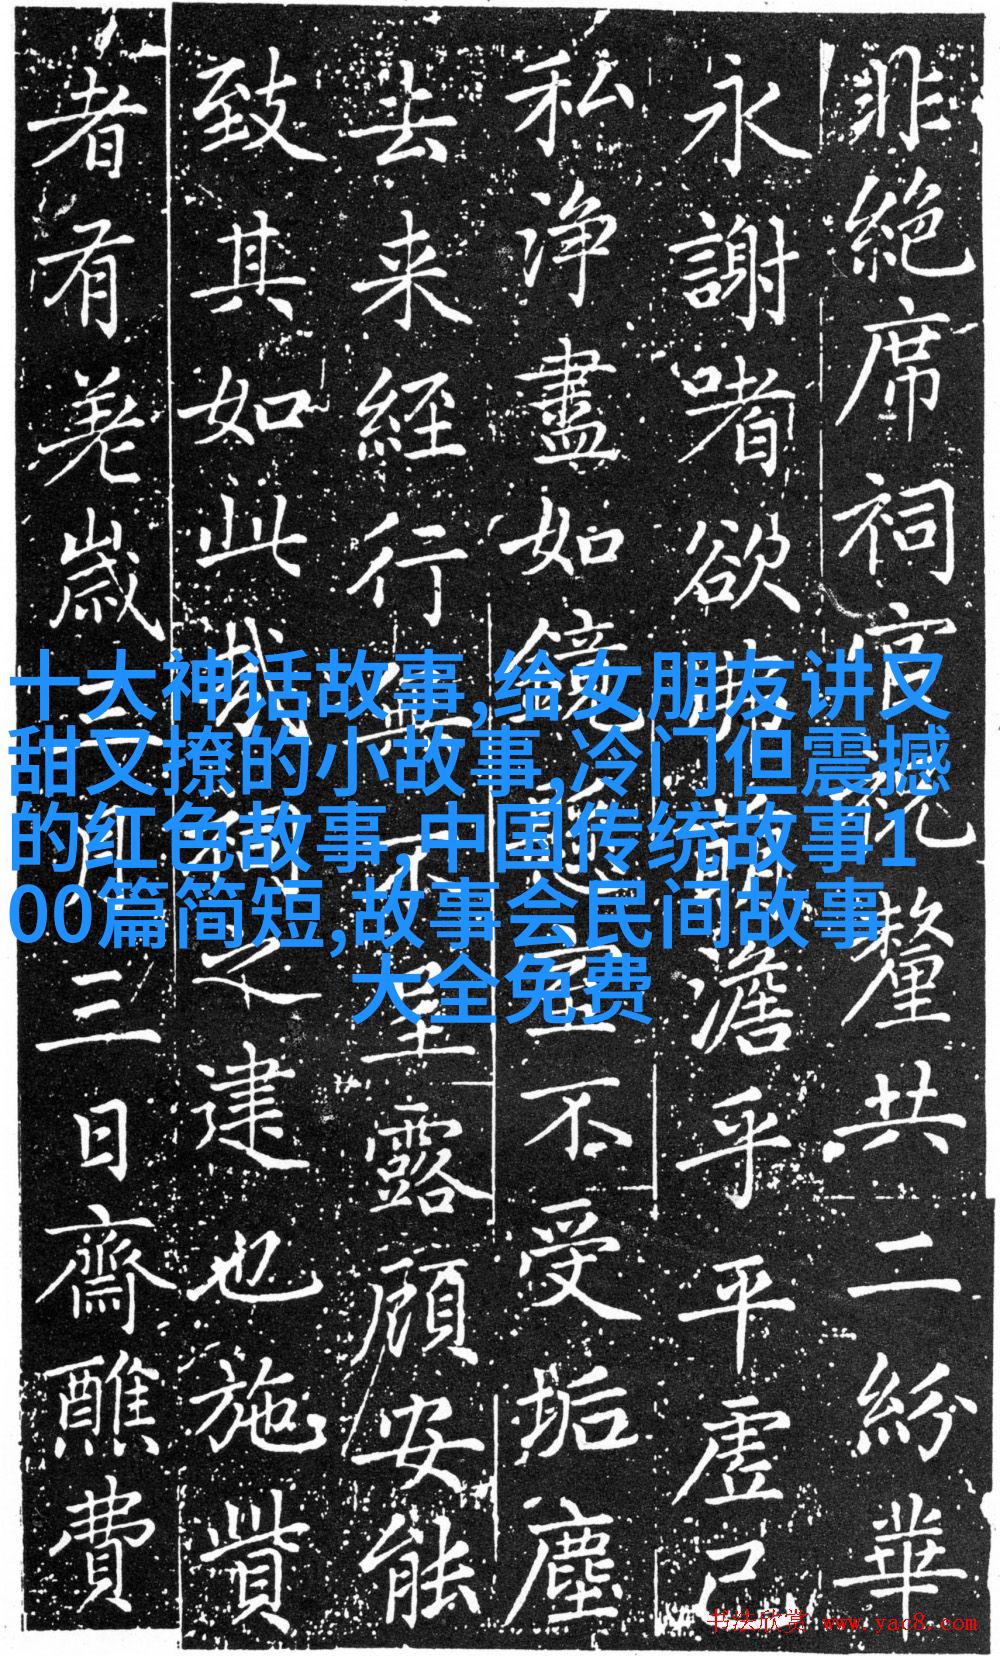 非絶席祠官况釐共二紛華
永謝嗜欲澹乎平虚己
私净盡如鏡不受垢塵
去来經行無不露顧安能
致其如此哉之建也施貲
者有羗歲三月三日齋醮費
十大神话故事,给女朋友讲又
甜又撩的小故事,冷门但震撼
的红色故事,中国传统故事1
00篇简短,故事会民间故事
大全免费
书法欣赏 www.yac8.com